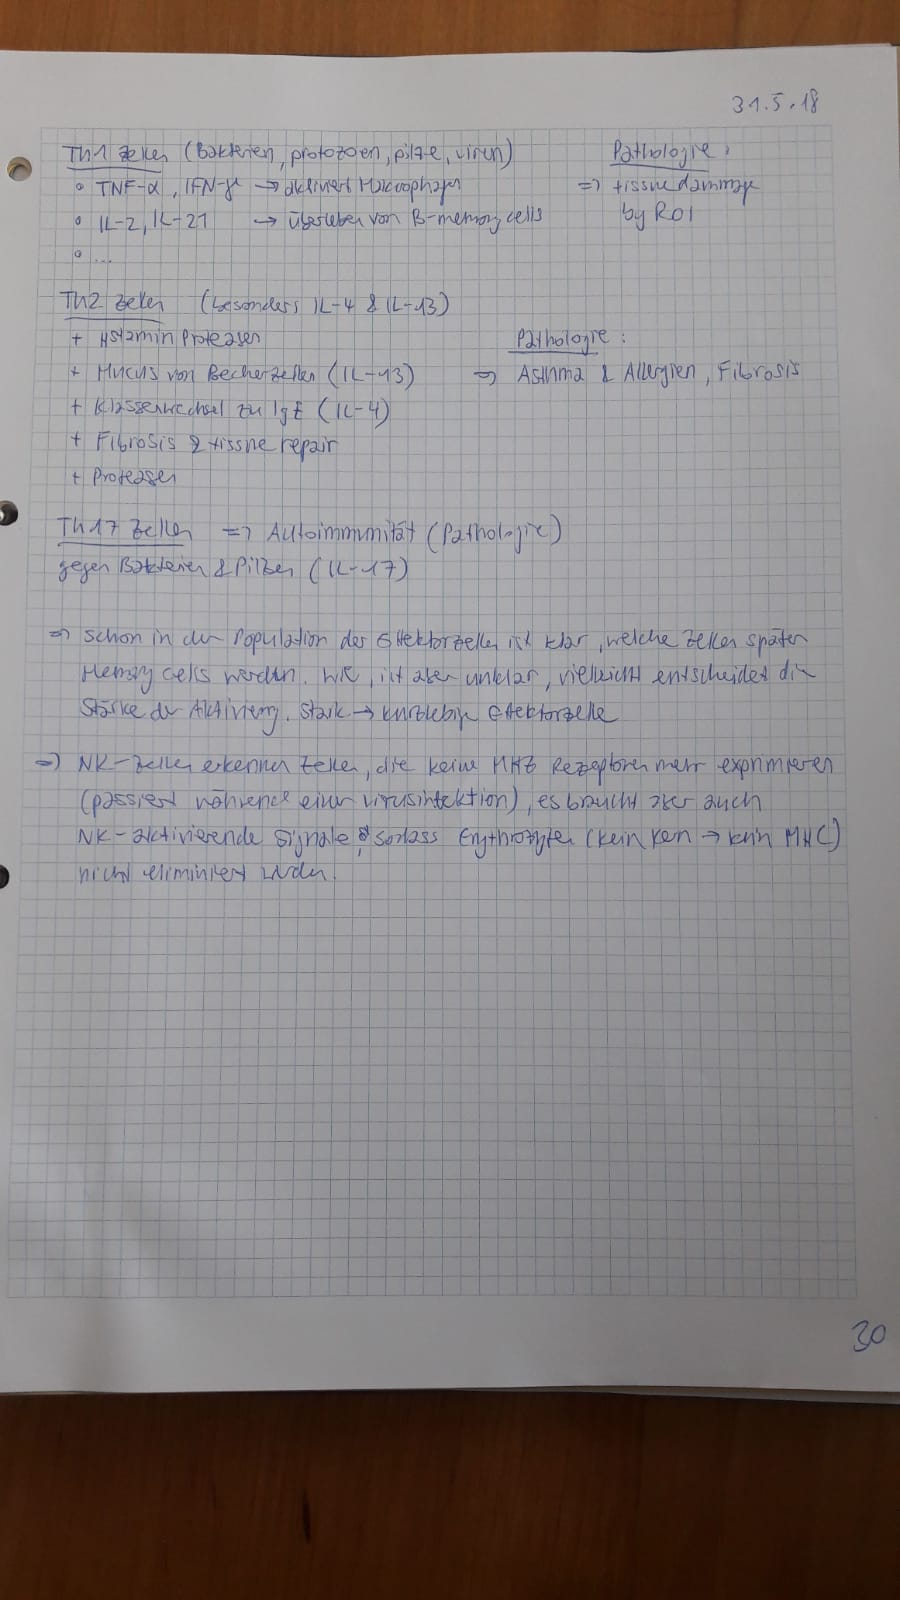 31.5.18
Th1 Zellen (Bakterien, protozoen, pilze, viren)
Pathologie:
° TNF-α, IFN-γ → aktiviert Makrophagen
=> tissue dammage
° IL-2, IL-21 → überleben von B-memory cells
by ROI
° ...
Th2 Zellen (besonders IL-4 & IL-13)
+ Histamin Proteasen
Pathologie:
+ Mucus von Becherzellen (IL-13)
=> Asthma & Allergien, Fibrosis
+ Klassenwechsel zu IgE (IL-4)
+ Fibrosis & tissue repair
+ Proteasen
Th17 Zellen => Autoimmunität (Pathologie)
gegen Bakterien & Pilzen (IL-17)
=> schon in der Population der Effektorzellen ist klar, welche Zellen später
Memory cells werden. Wie, ist aber unklar, vielleicht entscheidet die
Stärke der Aktivierung. Stark → kurzlebige Effektorzelle
=> NK-Zellen erkennen Zellen, die keine Rezeptoren mehr exprimieren
(passiert während einer virusinfektion), es braucht aber auch
NK-aktivierende Signale, sodass Erythrozyten (kein Kern → kein MHC)
nicht eliminiert werden.
30